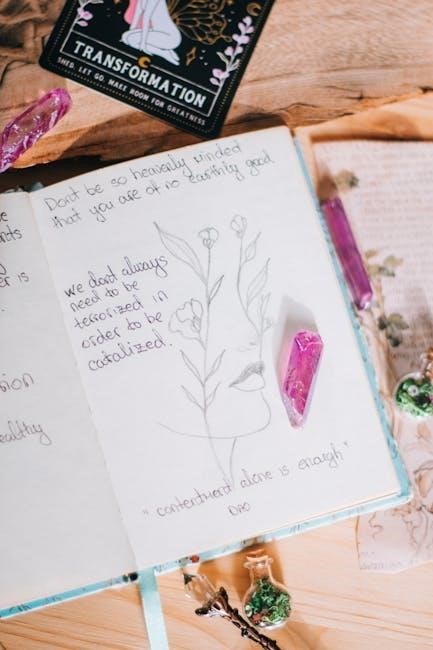 TRANSFORMATION
SHED, LET GO, MAKE ROOM FOR GREATNESS
Dont be so heavenly minded
that you are of no earthly good
we dont always
need to be
terrorized in
order to be
catalized.
"contentment alone is enough"
DAO
er is
ealthy